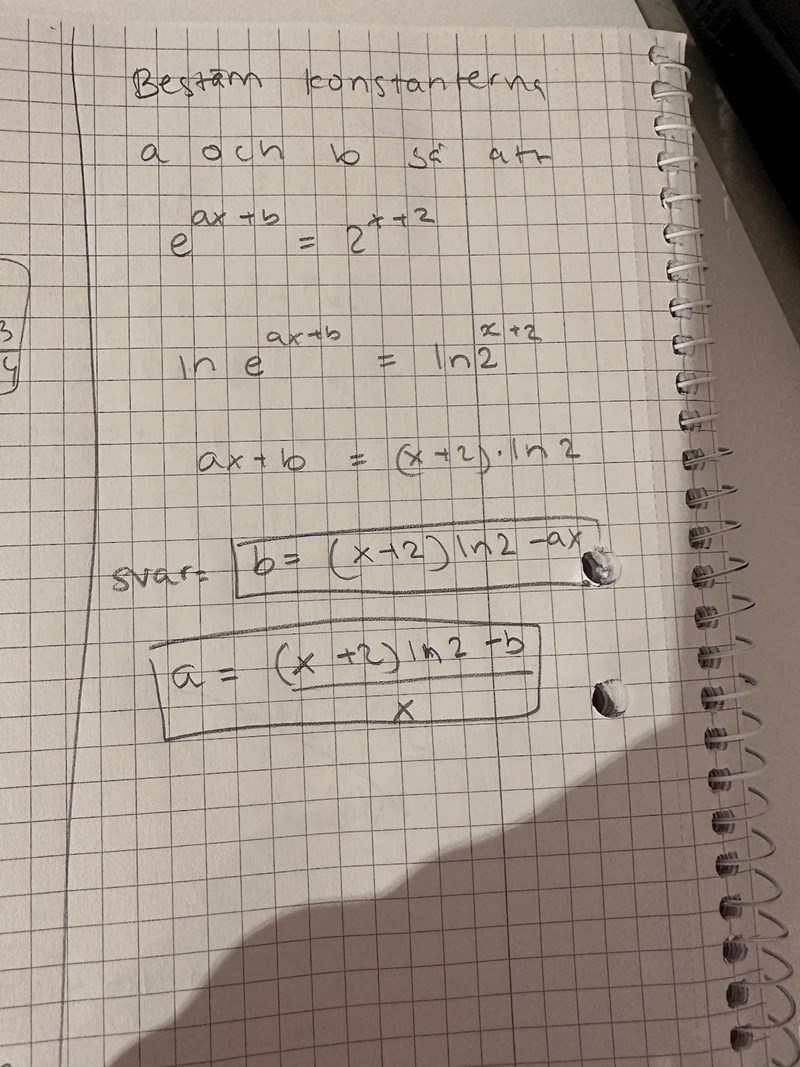 Bestäm konstanterna
a och b så att
e^(ax+b) = 2^(x+2)
ln e^(ax+b) = ln 2^(x+2)
ax+b = (x+2)·ln 2
svar= b = (x+2) ln 2 - ax
a = ((x+2) ln 2 - b)/x
3/4